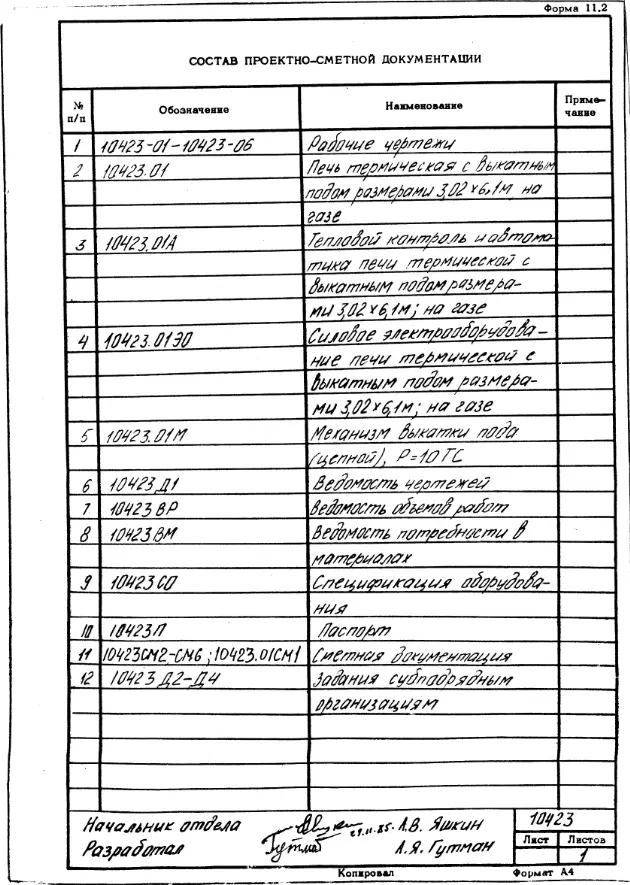 Форма 11.2
СОСТАВ ПРОЕКТНО-СМЕТНОЙ ДОКУМЕНТАЦИИ
№ п/п Обозначение Наименование Приме-чание
1 10423-01-10423-06 Рабочие чертежи
2 10423.01 Печь термическая с выкатным
подом размерами 3,02×6,1м, на
газе
3 10423.01А Тепловой контроль и автома-
тика печи термической с
выкатным подом размера-
ми 3,02×6,1м; на газе
4 10423.01ЭО Силовое электрооборудова-
ние печи термической с
выкатным подом размера-
ми 3,02×6,1м; на газе
5 10423.01М Механизм выкатки пода
(цепной), Р=10ТС
6 10423Д1 Ведомость чертежей
7 10423 ВР Ведомость объемов работ
8 10423ВМ Ведомость потребности в
материалах
9 10423СО Спецификация оборудова-
ния
10 10423П Паспорт
11 10423СМ2-СМ6; 10423.01СМ1 Сметная документация
12 10423 Д2-Д4 Задания субподрядным
организациям
Начальник отдела 29.11.85. А.В. Яшкин
Разработал Гутман А.Я. Гутман
10423
Лист Листов
1
Копировал Формат А4